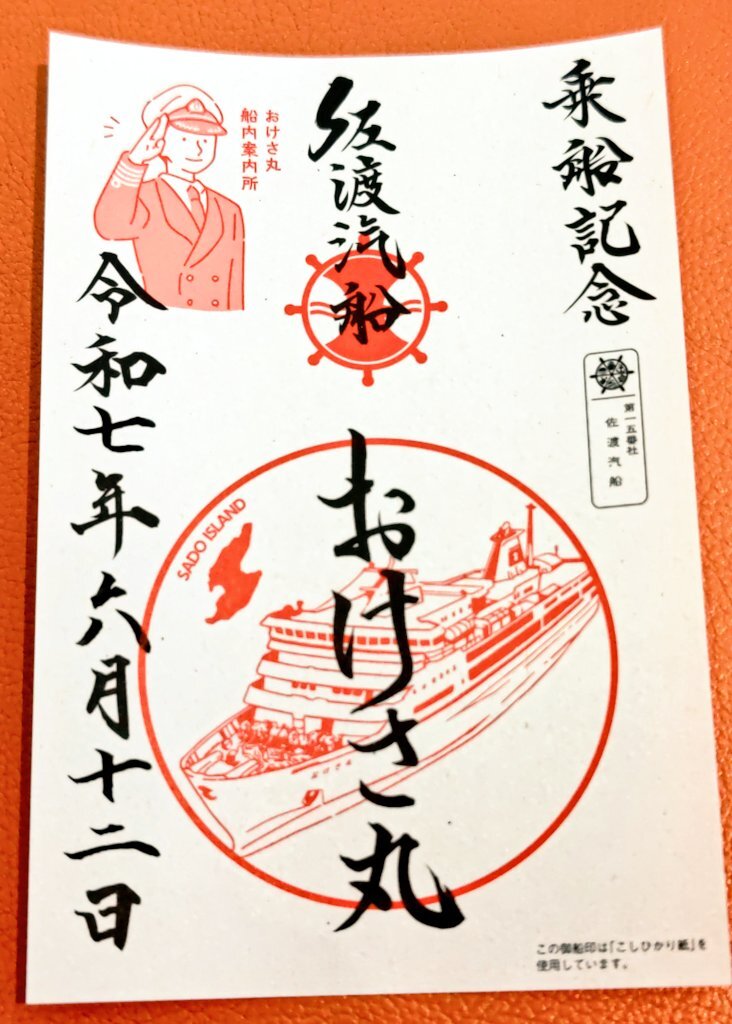 乗船記念
第一五番社
佐渡汽船
佐渡汽船
おけさ丸
おけさ丸
船内案内所
令和七年六月十二日
SADO ISLAND
おけさ丸
この御船印は「こしひかり紙」を
使用しています。